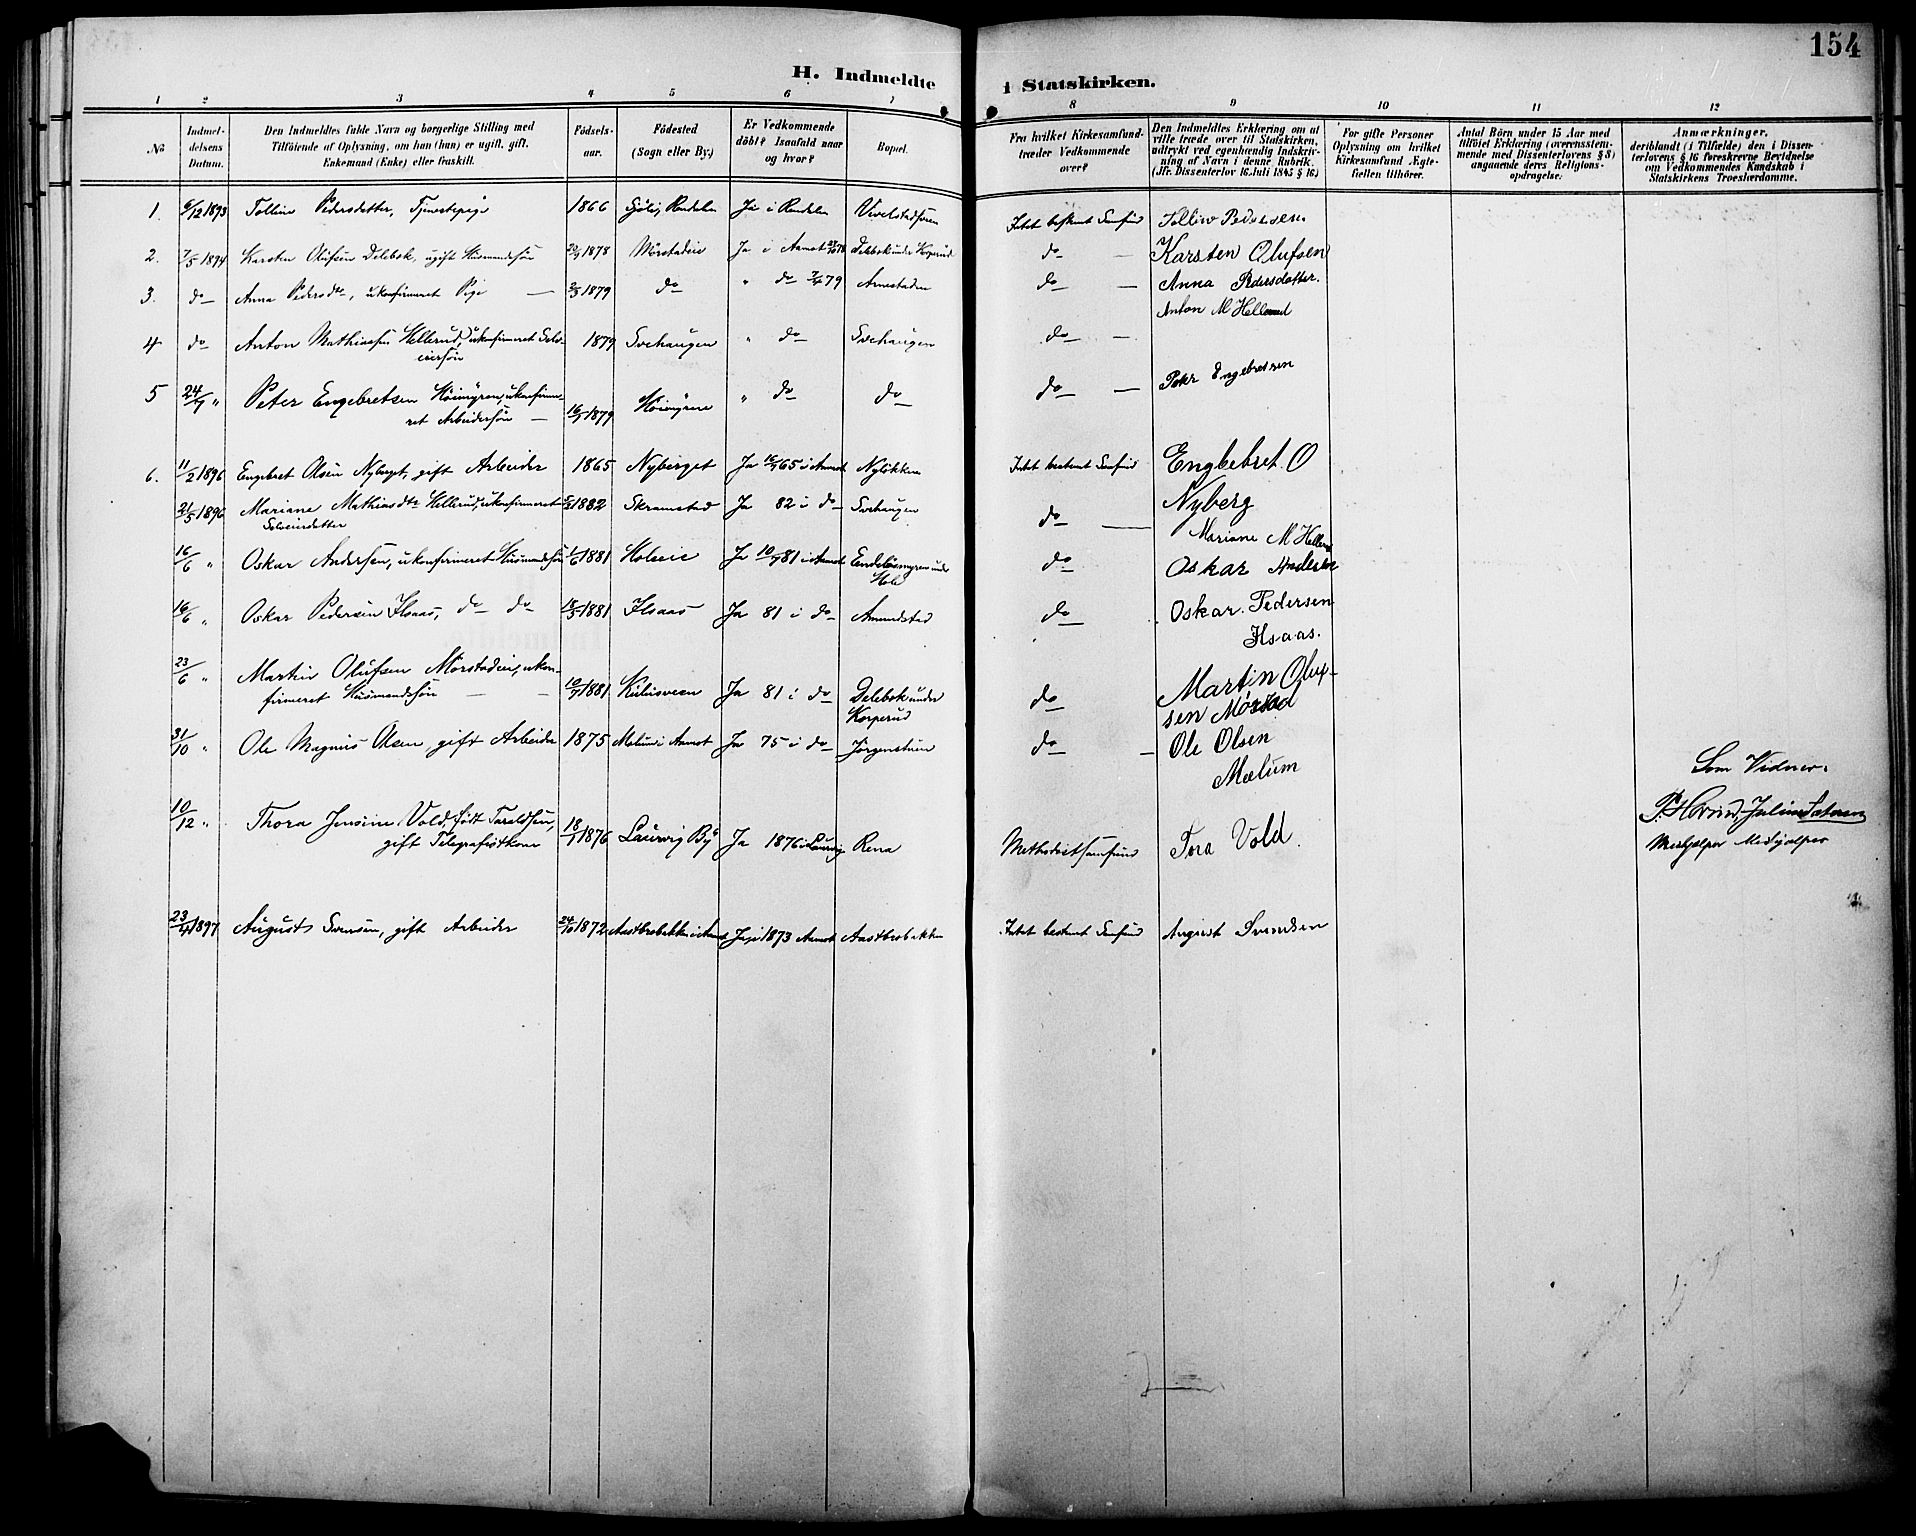 154
H. Indmeldte i Statskirken.
1 2 3 4 5 6 7 8 9 10 11 12
No.
Indmel-
delsens
Datum.
Den Indmeldtes fulde Navn og borgerlige Stilling med
Tilföiende af Oplysning, om han (hun) er ugift, gift,
Enkemand (Enke) eller fraskilt.
Födsels-
aar.
Födested
(Sogn eller By.)
Er Vedkommende
döbt? Isaafald naar
og hvor?
Bopæl.
Fra hvilket Kirkesamfund
træder Vedkommende
over?
Den Indmeldtes Erklæring om at
ville træde over til Statskirken,
udtrykt ved egenhændig Indskriv-
ning af Navn i denne Rubrik.
(Jfr. Dissenterlov 16 Juli 1845 § 16)
For gifte Personer
Oplysning om hvilket
Kirkesamfund Ægte-
fællen tilhörer.
Antal Börn under 15 Aar med
tilföiet Erklæring (overensstem-
mende med Dissenterlovens § 8)
angaaende deres Religions-
opdragelse.
Anmærkninger,
deriblandt (i Tilfælde) den i Dissen-
terlovens § 16 foreskrevne Bevidnelse
om Vedkommendes Kundskab i
Statskirkens Troeslærdomme.
1. 6/12 1893 Pedersdatter, Tjenestepige 1866 Rendalen Ja i Rendalen Intet bestemt Samfund
2. 7/5 1894 Karsten Olufsen Delebæk, ugift Husmandssøn 1878 Mørstadeie Ja i Aamot Delebæk under Korperud do — Karsten Olufsen
3. do Anna Pedersdtr, ukonfirmeret Pige — 1879 do " do 79 Arnestaden do — Anna Pedersdatter.
Anton M Hellerud
4 do Anton Mathiassen Hellerud, ukonfirmeret Selv-
eiersøn 1879 Svehaugen " do Svehaugen do —
5 24/7 " Peter Engebretsen Høimyren, ukonfirme-
ret Arbeidersøn — 1879 Høimyrene " do do do — Engebretsen
6. 11/2 1896 Engebret Olsen Nyberget, gift Arbeider 1865 Nyberget Ja 65 i Aamot Intet bestemt Samfund Englebret. O
Nyberg
21/5 1896 Mariane Mathiasdtr Hellerud, ukonfirmeret
Selveierdatter 1882 Skramstad Ja 82 i do Svehaugen do — Mariane M Hellerud
16/6 " Oskar Andersen, ukonfirmeret Husmandssøn 1881 Holseie Ja 10/7 81 i Aamot under
Hole do Oskar Andersen
16/6 " Oskar Pedersen Ilsaas, do do 18/5 1881 Ilsaas Ja 81 i do Amundstad do Oskar. Pedersen
Ilsaas.
23/6 " Martin Olufsen Mørstadeie, ukon-
firmeret Husmandssøn — 10/7 1881 Ja 81 i do Delebæk under
Korperud do Martin Oluf-
sen Mørstad
31/10 " Ole Magnus Olsen, gift Arbeider 1875 Melum i Aamot Ja 75 i do do — Ole Olsen
Mælum
10/12 " Thora Jensine Vold, født Taraldsen,
gift Telegrafistkone 18/7 1876 Laurvig By Ja 1876 i Laurvig Rena Methodistsamfund Tora Vold.
Som Vidner.
Medhjælper Medhjælper
23/4 1897 August Svensen, gift Arbeider 24/10 1872 Aastbrobakken i Aamot Ja, i 1873 Aamot Aastbrobakken Intet bestemt Samfund August Svendsen